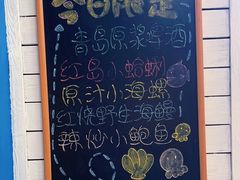 今日限定
青岛原浆啤酒
红岛小蛤蜊
原汁小海螺
红烧野生海鳗
辣炒小鲍鱼